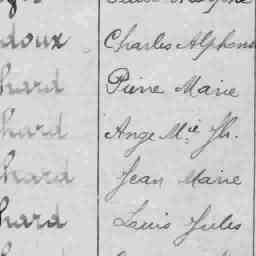 doux Charles Alphons
hard Pierre Marie
hard Ange Mie Jh.
hard Jean Marie
hard Louis Jules